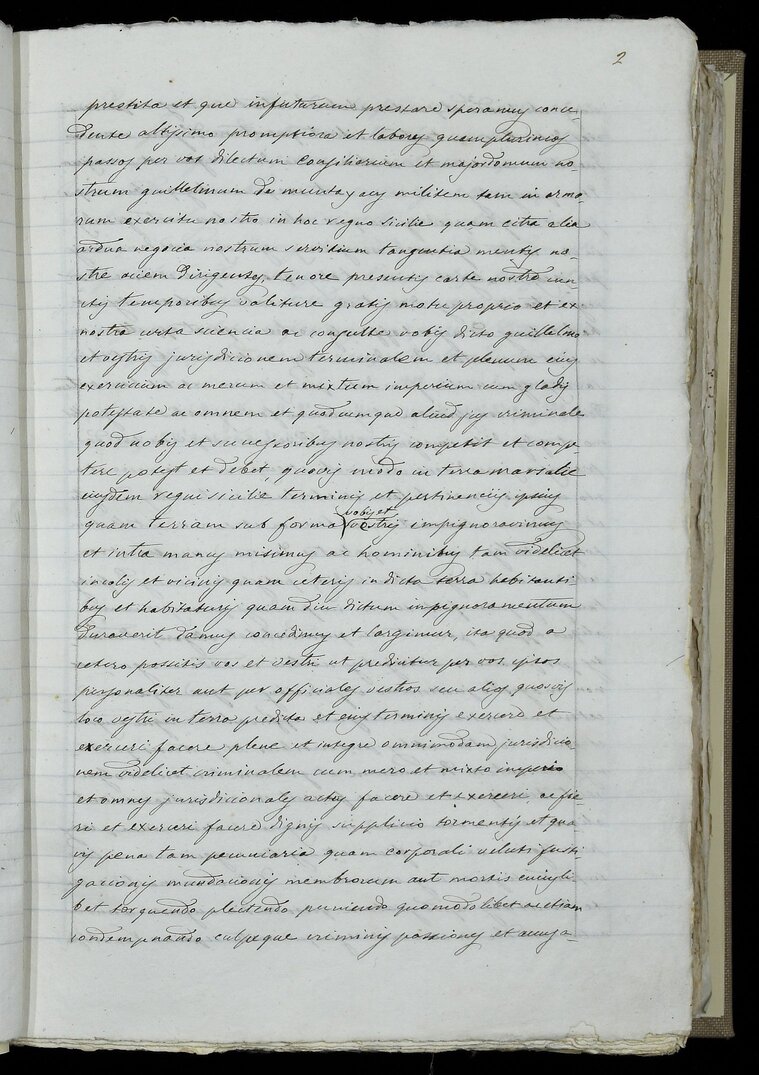 2
prestita et que infuturum prestare speramus conce-
dente altissimo promptiora et labores quamplurimos
passos per vos dilectum Consiliarium et majordomum no-
strum guillelmum de muntayans militem tam in armo-
rum exercitu nostro in hoc regno sicilie quam citra alia
ardua negocia nostrum servitium tangentia mentis no-
stre aciem Dirigentes, tenore presentis carte nostre cun-
ctis temporibus valiture gratis motu proprio et ex
nostra certa sciencia ac consulte vobis dicto guillelmo
et vestris jurisdicionem terminalem et plenum eius
exercicium ac merum et mixtum imperium cum gladij
potestate ac omnem et quodcumque aliud jus criminale
quod nobis et successoribus nostris competit et compe-
tere potest et debet, quovis modo in terra marsalie
eiusdem regni sicilie terminis et pertinenciis ipsius
quam terram sub forma vobis et vestris impignoravimus
et intra manus misimus ac hominibus tam videlicet
incolis et vicinis quam ceteris in dicta terra habitanti-
bus et habitaturis quam diu dictum inpignoramentum
duraverit damus concedimus et largimur, ita quod a
cetero possitis vos et vestri ut predicitur per vos ipsos
personaliter aut per officiales vestros seu alios quosvis
loco vestri in terra predicta et eius terminis exercere et
exerceri facere plene et integre omnimodam jurisdicio-
nem videlicet criminalem cum mero et mixto imperio
et omnes jurisdicionales actus facere et exerceri ac fie-
ri et exerceri facere dignis supplicio tormentis et qua-
vis pena tam pecuniaria quam corporali veluti fusti-
gacionis mundacionis membrorum aut mortis cuiusli-
bet torquendo plectendo puniendo quomodolibet ac etiam
condempnando culpeque criminis passiones et accusa-